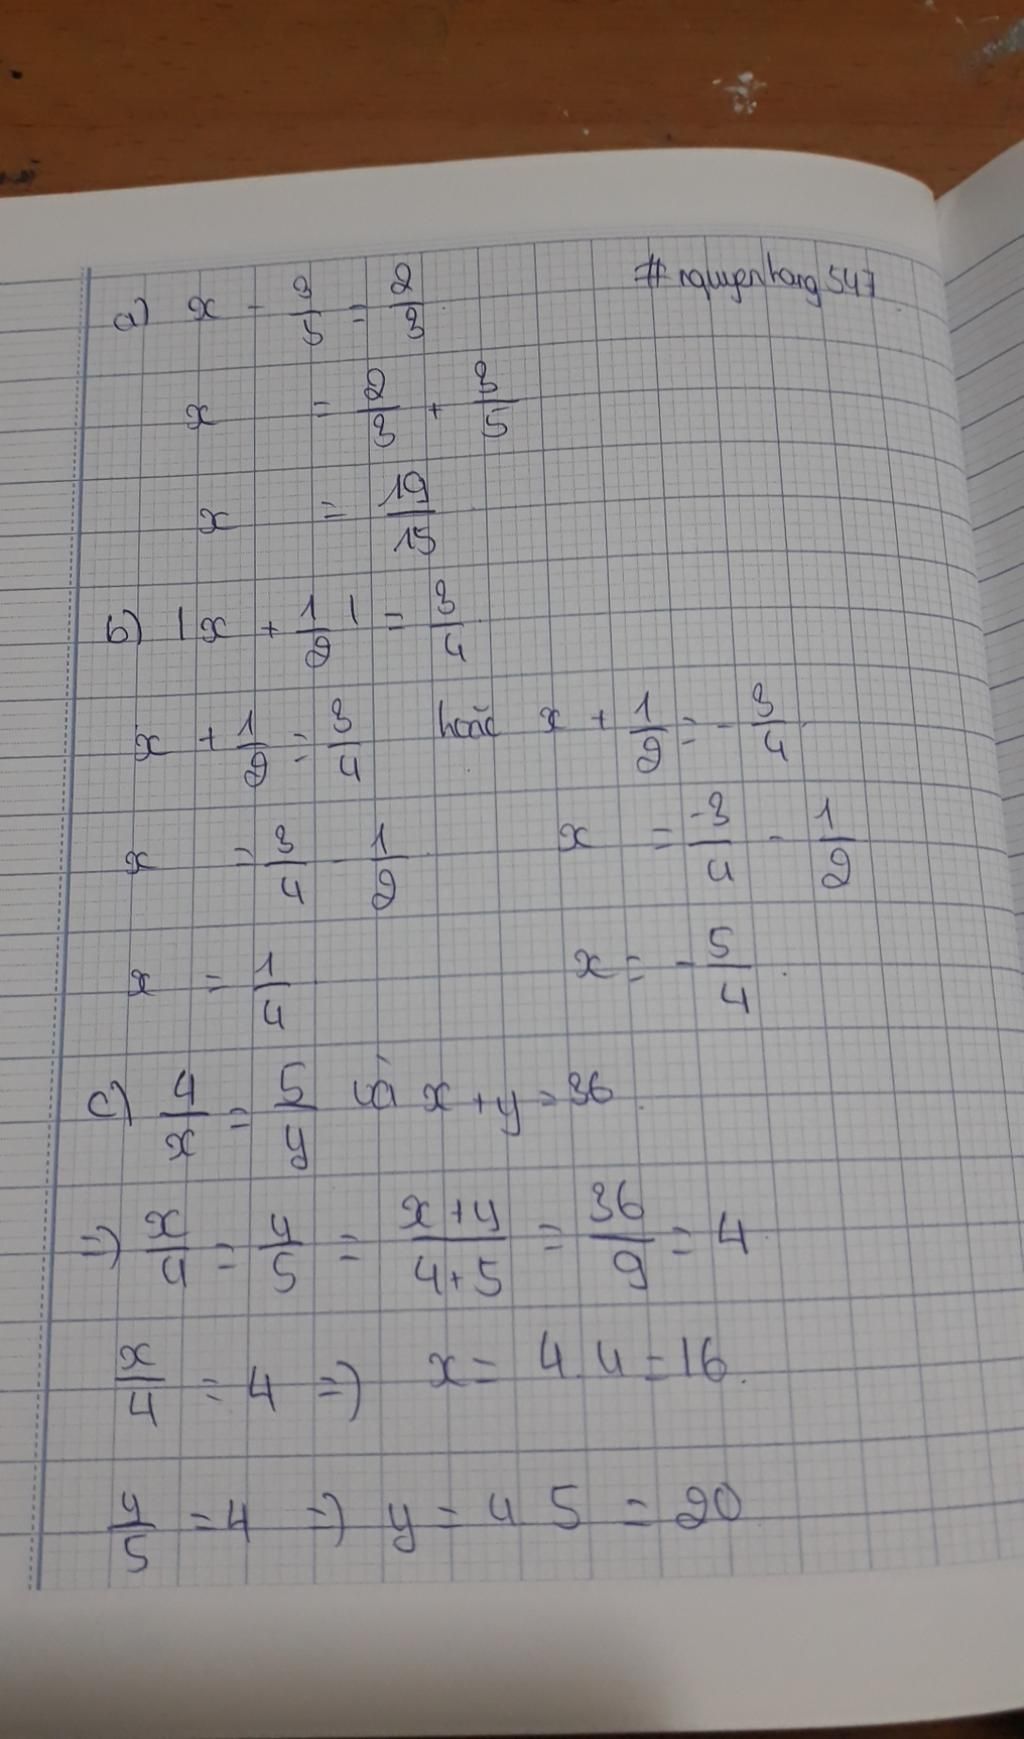 #nguyenhang547
a) x - 3/5 = 2/3
x = 2/3 + 3/5
x = 19/15
b) |x + 1/2| = 3/4
x + 1/2 = 3/4 hoặc x + 1/2 = - 3/4
x = 3/4 - 1/2 x = -3/4 - 1/2
x = 1/4 x = - 5/4
c) 4/x = 5/y và x + y = 36
=> x/4 = y/5 = x+y/4+5 = 36/9 = 4
x/4 = 4 => x = 4.4 = 16
y/5 = 4 => y = 4 5 = 20